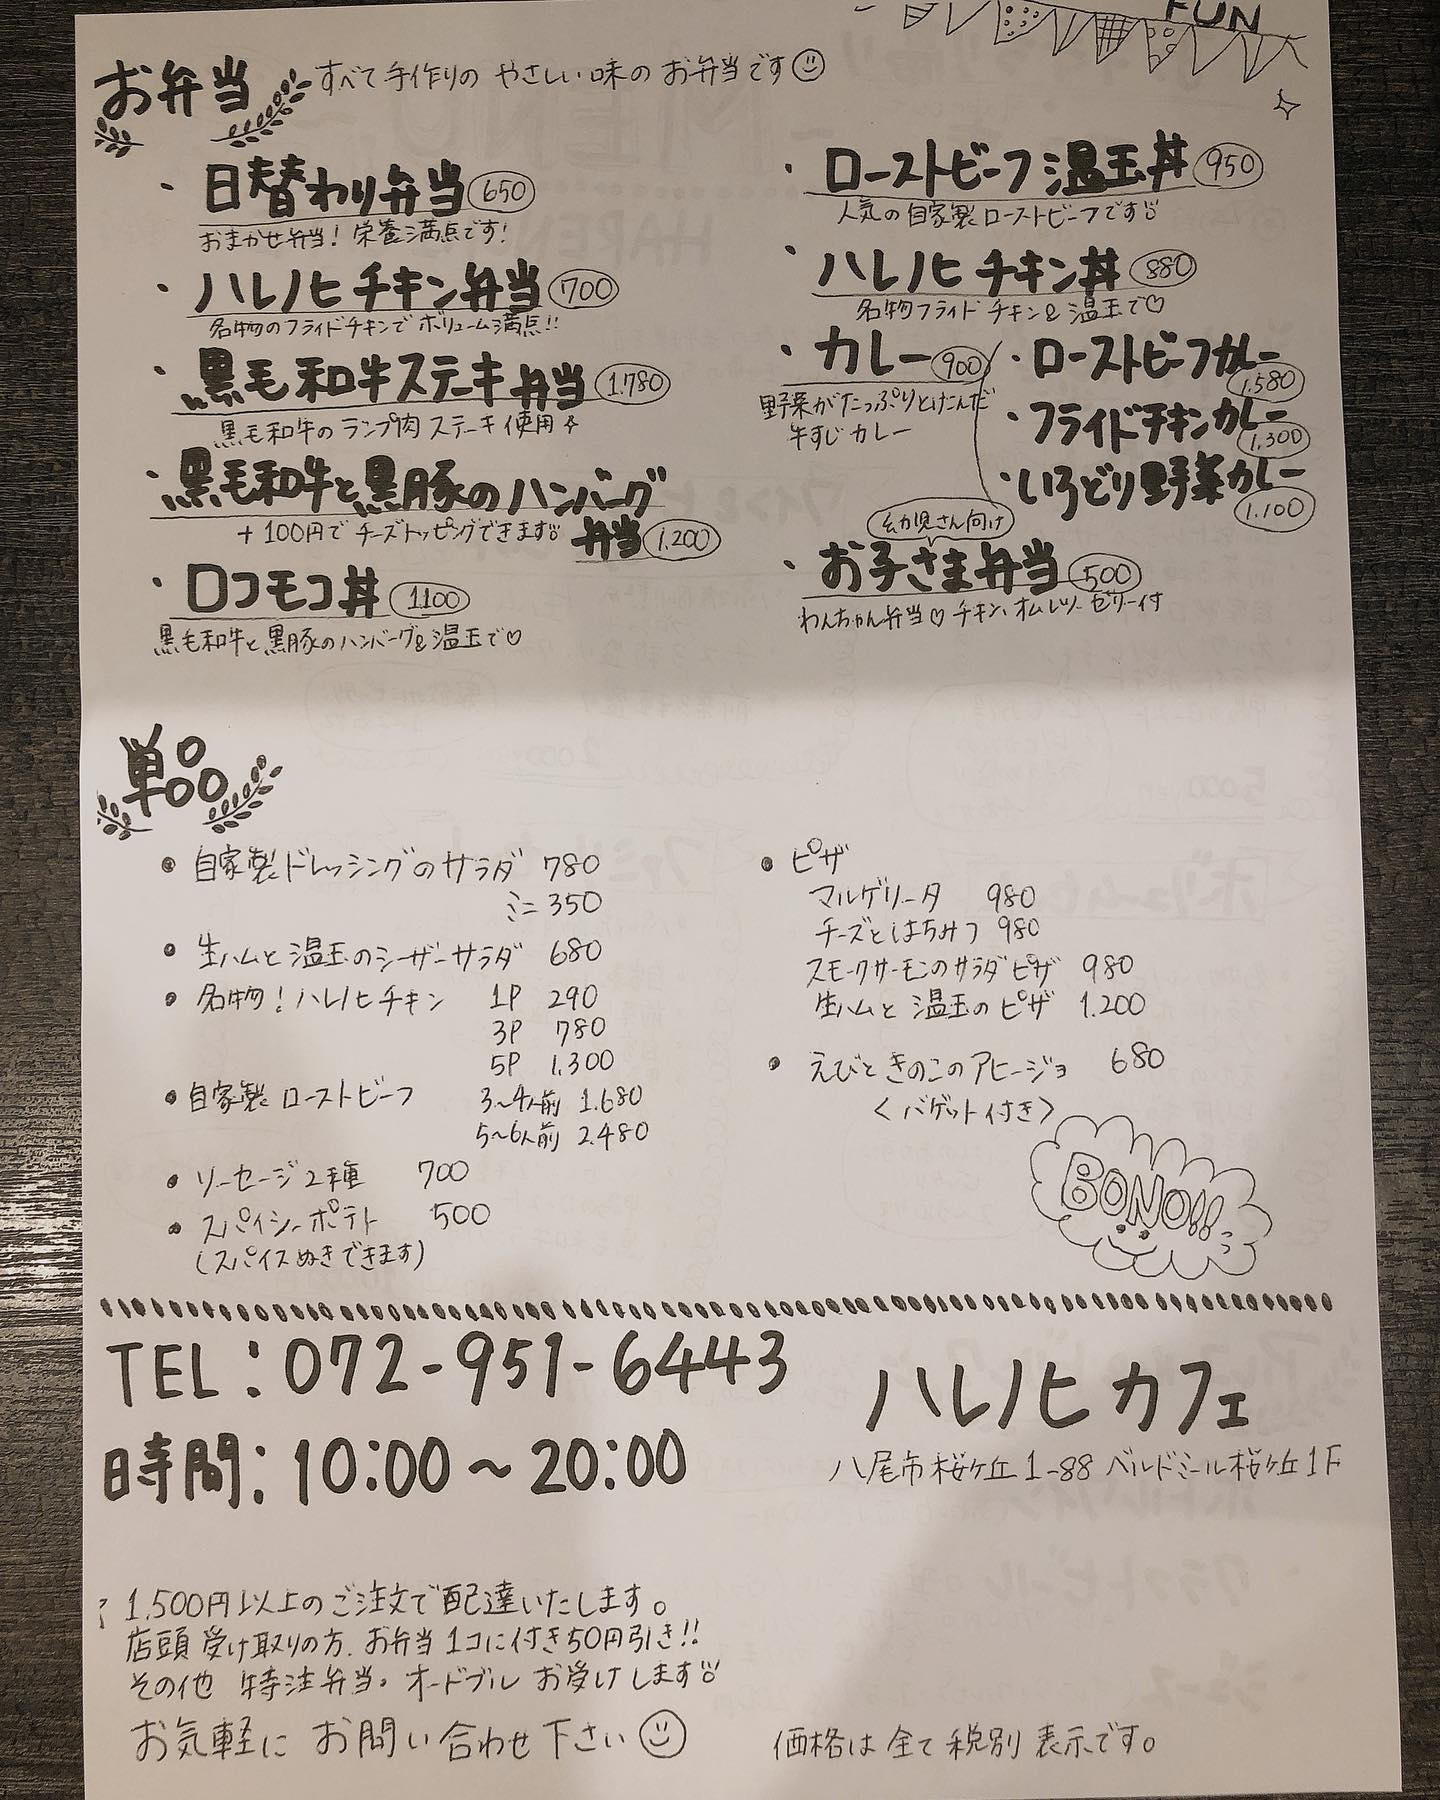 FUN
お弁当 すべて手作りの やさしい味の お弁当です
・日替わり弁当 650
おまかせ弁当! 栄養満点です!
・ハレノヒチキン弁当 700
名物のフライドチキンで ボリューム満点!!
・黒毛和牛ステーキ弁当 1.780
黒毛和牛の ランプ肉 ステーキ使用
・黒毛和牛と黒豚のハンバーグ
+100円で チーズトッピングできます 弁当 1.200
・ロコモコ丼 1100
黒毛和牛と黒豚のハンバーグ&温玉で♡
・ローストビーフ温玉丼 950
人気の自家製ローストビーフです
・ハレノヒ チキン丼 880
名物フライドチキン&温玉で♡
・カレー 900
野菜がたっぷりとけこんだ
牛すじカレー
・ローストビーフカレー
1.580
・フライドチキンカレー
1.300
・いろどり野菜カレー
1.100
幼児さん向け
・お子さま弁当 500
わんちゃん弁当♡チキン、オムレツ、ゼリー付
単品
・自家製ドレッシングのサラダ 780
ミニ 350
・生ハムと温玉のシーザーサラダ 680
・名物!ハレノヒチキン 1P 290
3P 780
5P 1,300
・自家製ローストビーフ 3~4人前 1.680
5~6人前 2.480
・ソーセージ2種 700
・スパイシーポテト 500
(スパイスぬきできます)
・ピザ
マルゲリータ 980
チーズとはちみつ 980
スモークサーモンのサラダピザ 980
生ハムと温玉のピザ 1.200
・えびときのこのアヒージョ 680
<バゲット付き>
BONO!!
TEL:072-951-6443
時間:10:00~20:00
ハレノヒカフェ
八尾市桜ヶ丘1-88 ベルドミール桜ヶ丘1F
1,500円以上のご注文で配達いたします。
店頭受け取りの方、お弁当1コに付き50円引き!!
その他 特注弁当・オードブル お受けします
お気軽に お問い合わせ下さい
価格は全て税別表示です。